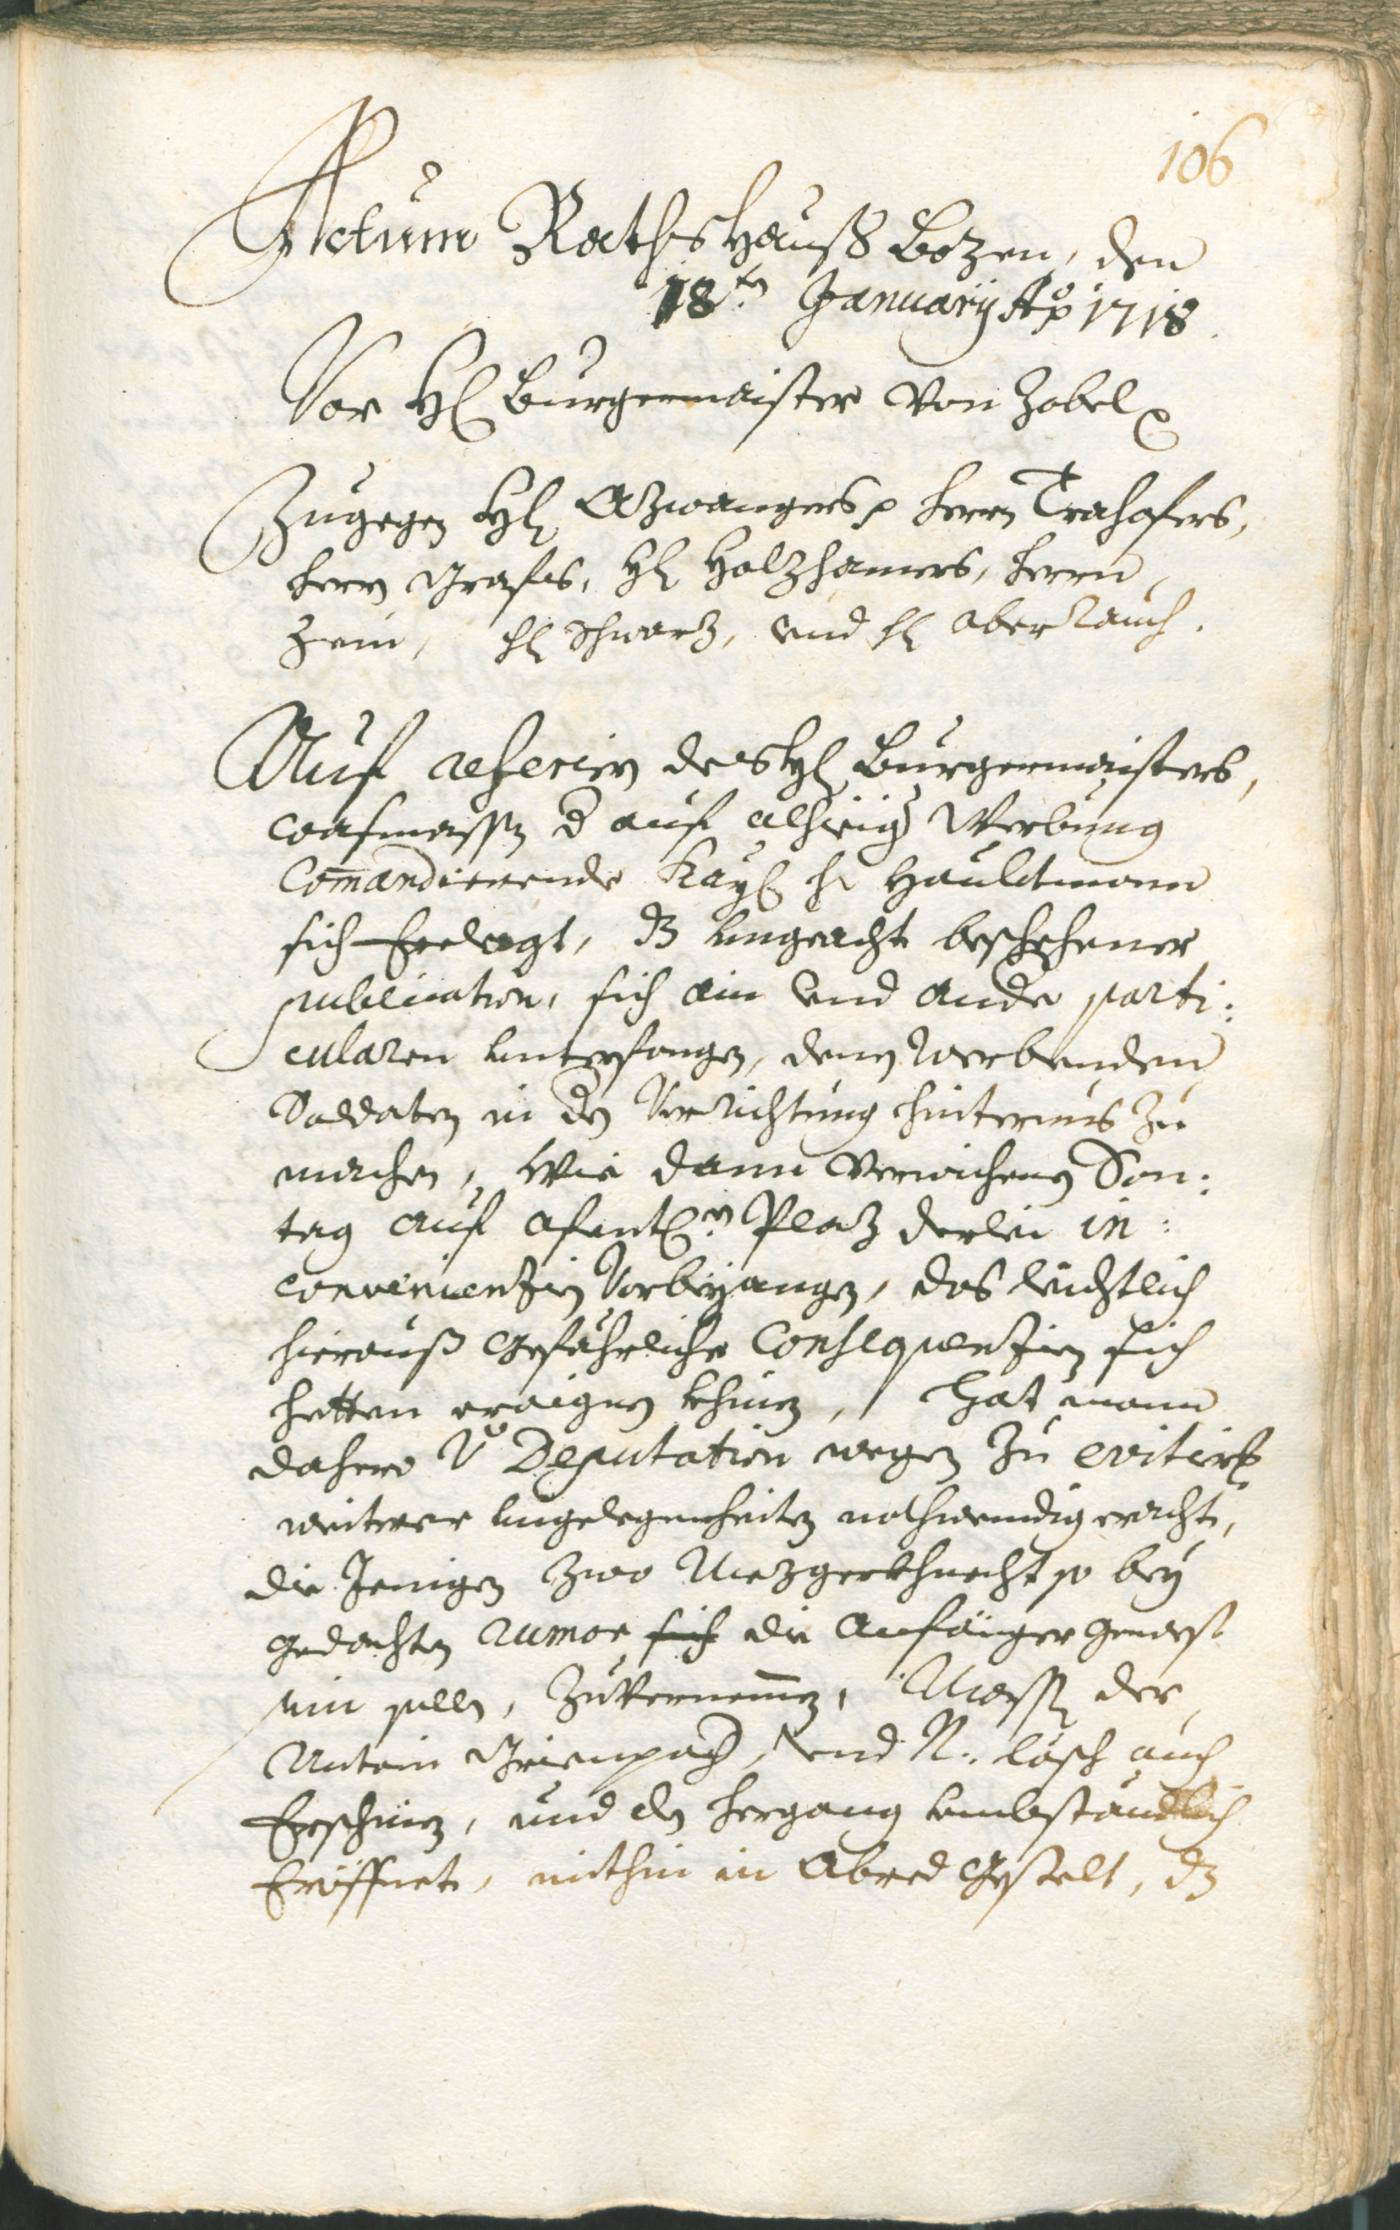 106
Actum Rathshauß Bozen, den
18ten January Ao 1718.
Vor Hl Burgermaister von Zobel
Zugegen Hl Azwangers p Herrn Trahofers,
Herrn Grafes, Hl Holzhamers, Herrn
Hl Schwarz, und Hl aber Rauch.
Auf referirn des Hl Burgermaisters,
wasmassen d auf alhieig Werbung
Commandierende Kayl Hr Haubtmann
sich Beclagt, dz ungeacht beschehener
publication, sich ain und ander parti:
cularen unterfangen, denen werbenden
Soldaten in der Verrichtung hinternus zu
machen, wie dann verwichenen Son:
tag auf ofentlen Plaz derlei in:
convenienzien Vorbeygangen, das leichtlich
hierauß gefährliche Consequenzien sich
hetten eraignen khinen, Hat mann
dahero Deputation wegen zu evitirung
weiterer ungelegenheiten nothwendig eracht,
die Jenigen zwo Mezgerkhnecht so bey
gedachten rumor sich die Anfänger gewest
sein sollen, zuvernemen, Massen der
Antoni Grienpach, und N: Läsch auch
Erschinen, und den hergang umbständlich
Eröffnet, mithin in Abred gestelt, dz